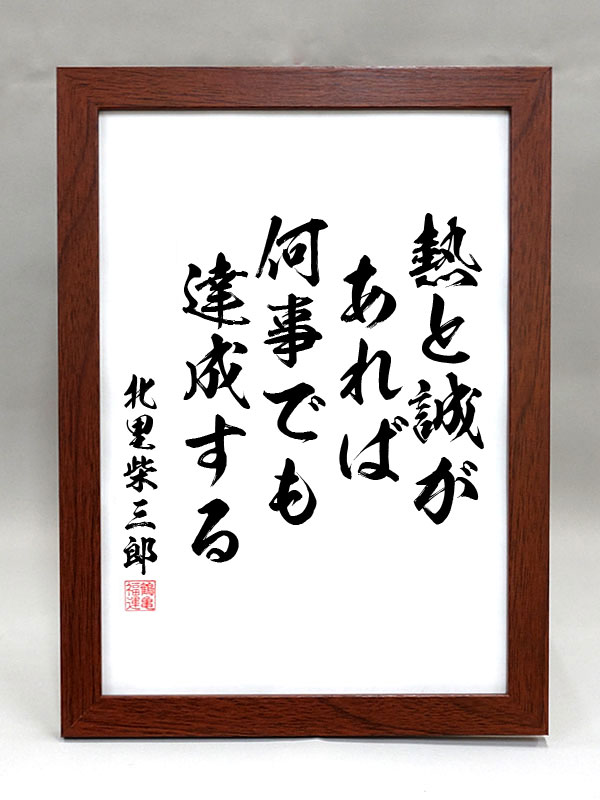 熱と誠が
あれば
何事でも
達成する
北里柴三郎
鶴亀
福運